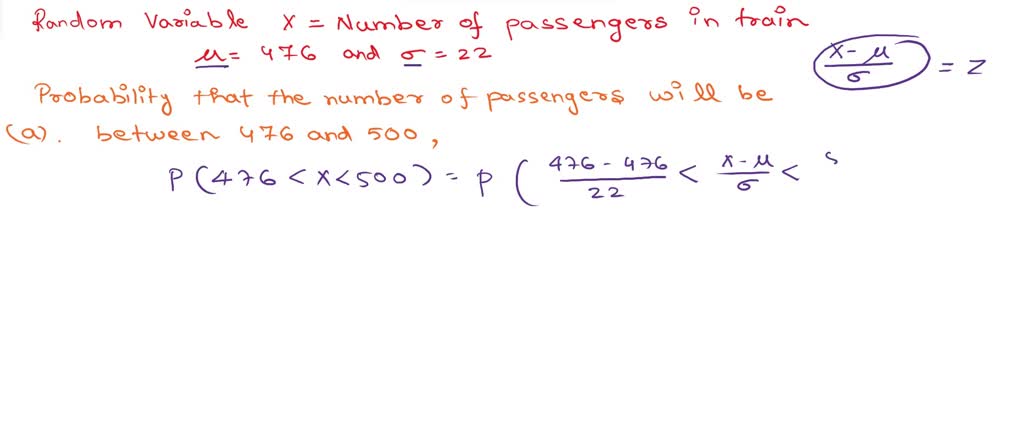 Random Variable X = Number of passengers in train
μ = 476 and σ = 22
(x - μ)/σ = z
Probability that the number of passengers will be
(a). between 476 and 500,
P(476 < x < 500) = P( (476 - 476)/22 < (x - μ)/σ < 5